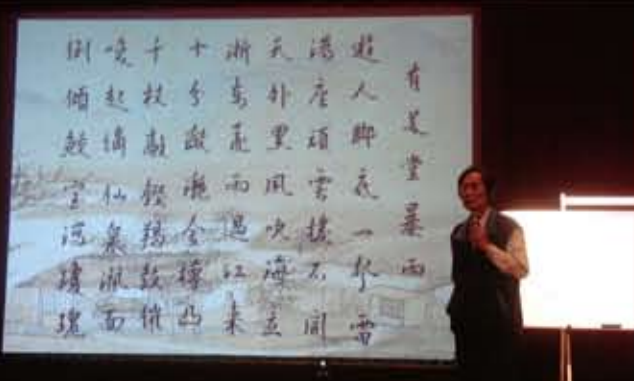 有美堂暴雨
遊人脚底一聲雷
滿座頑雲撥不開
天外黑風吹海立
浙東飛雨過江來
十分瀲灔金樽凸
千杖敲鏗羯鼓催
喚起謫仙泉洒面
倒傾鮫室瀉瓊瑰